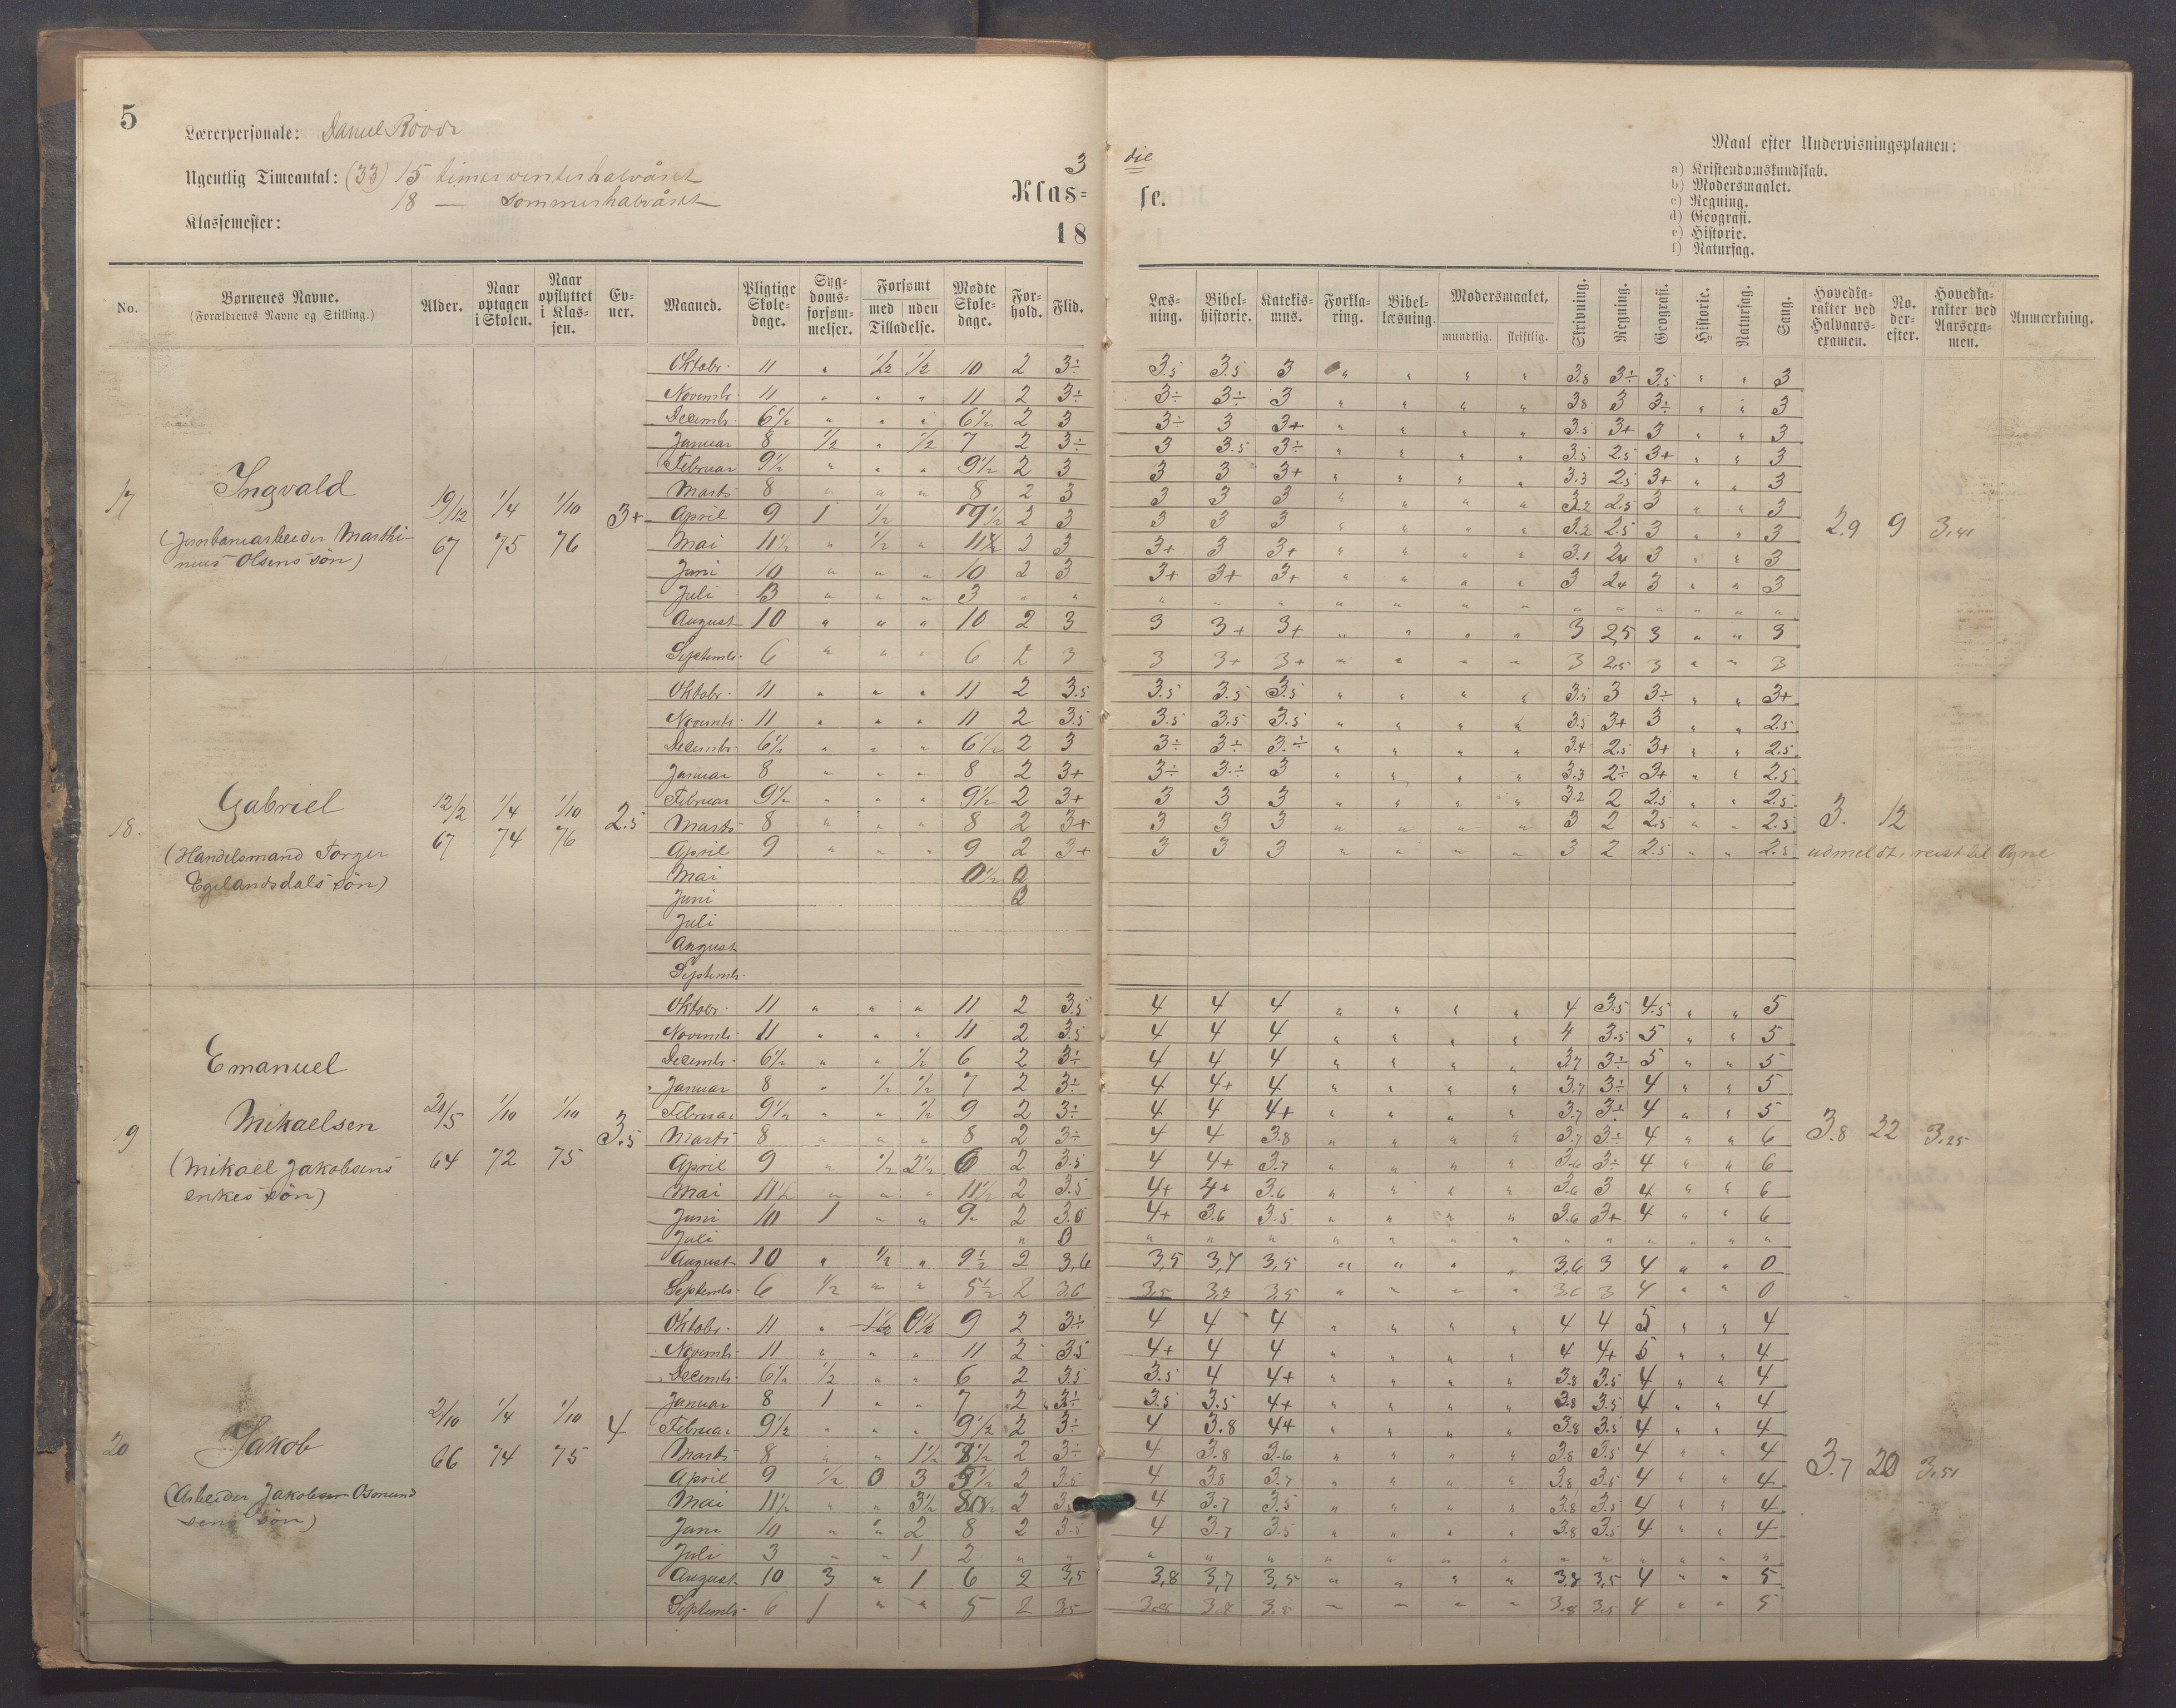 5
Lærerpersonale: Daniel
Ugentlig Timeantal: (33) 15 timer vinterhalvåret
18 — sommerhalvåret
Klassemester:
3 die
Klas= se.
18
Maal efter Undervisningsplanen:
a) Kristendomskundskab.
b) Modersmaalet.
c) Regning.
d) Geografi.
e) Historie.
f) Naturfag.
No. Børnenes Navne. (Forældrenes Navne og Stilling.) Alder. Naar optagen i Skolen. Naar opflyttet i Klassen. Evner. Maaned. Pligtige Skoledage. Sygdomsforsømmelser. Forsømt med uden Tilladelse. Mødte Skoledage. Forhold. Flid. Læsning. Bibelhistorie. Katekismus. Forklaring. Bibellæsning. Modersmaalet, mundtlig. skriftlig. Skrivning. Regning. Geografi. Historie. Naturfag. Sang. Hovedkarakter ved Halvaarsexamen. No. derefter. Hovedkarakter ved Aarsexamen. Anmærkning.
17 Ingvald
(Jernbanearbeider Marthinius Olsens søn)
19/12 67 1/4 75 1/10 76 3+
Oktobr. 11 " 1/2 1/2 10 2 3÷ 3.5 3.5 3 " " " " 3.8 3÷ 3.5 " " 3
Novembr. 11 " " " 11 2 3÷ 3÷ 3÷ 3 " " " " 3.8 3 3÷ " " 3
Decembr. 6 1/2 " " " 6 1/2 2 3 3÷ 3 3+ " " " " 3.5 3+ 3 " " 3
Januar 8 1/2 " 1/2 7 2 3÷ 3 3.5 3÷ " " " " 3.5 2.5 3+ " " 3
Februar 9 1/2 " " " 9 1/2 2 3 3 3 3+ " " " " 3.3 2.5 3+ " " 3
Marts 8 " " " 8 2 3 3 3 3 " " " " 3.2 2.5 3 " " 3
April 9 1 1/2 2 3 3 3 3 " " " " 3.2 2.5 3 " " 3
Mai 11 1/2 " 1/2 " 2 3 3+ 3 3+ " " " " 3.1 2.4 3 " " 3
Juni 10 " " " 10 2 3 3+ 3+ 3+ " " " " 3 2.4 3 " " 3
Juli 3 " " " 3 " " " " " " " " " " " " " " "
August 10 " " " 10 2 3 3 3+ 3+ " " " " 3 2,5 3 " " 3
Septembr. 6 " " " 6 2 3 3 3+ 3+ " " " " 3 2.5 3 " " 3
2.9 9 3,41
18. Gabriel
(Handelsmand Torger Egelandsdals søn)
12/2 67 1/4 74 1/10 76 2.5
Oktobr. 11 " " " 11 2 3.5 3.5 3.5 3.5 " " " " 3.5 3 3÷ " " 3+
Novembr. 11 " " " 11 2 3.5 3.5 3.5 3.5 " " " " 3.5 3+ 3 " " 2.5
Decembr. 6 1/2 " " " 6 1/2 2 3 3÷ 3÷ 3.÷ " " " " 3.4 2.5 3+ " " 2.5
Januar 8 " " " 8 2 3+ 3÷ 3.÷ 3 " " " " 3.3 2÷ 3+ " " 2.5
Februar 9 1/2 " " " 9 1/2 2 3+ 3 3 3 " " " " 3.2 2 2.5 " " 2.5
Marts 8 " " " 8 2 3+ 3 3 3 " " " " 3 2 2.5 " " 2.5
April 9 " " " 9 2 3+ 3 3 3 " " " " 3 2 2.5 " " 2.5
Mai
Juni
Juli
August
Septembr.
3. 12
udmeldt, reist til Ogne
19 Emanuel
Mikaelsen
(Mikael Jakobsens enkes søn)
21/5 64 1/10 72 1/10 75 3.5
Oktobr. 11 " " " 11 2 3.5 4 4 4 " " " " 4 3.5 4.5 " " 5
Novembr. 11 " " " 11 2 3.5 4 4 4 " " " " 4 3.5 5 " " 5
Decembr. 6 1/2 " " 1/2 6 2 3÷ 4 4 4 " " " " 3.7 3÷ 5 " " 5
Januar 8 " 1/2 1/2 7 2 3÷ 4 4+ 4 " " " " 3.7 3÷ 4 " " 5
Februar 9 1/2 " " 1/2 9 2 3÷ 4 4 4+ " " " " 3.7 3÷ 4 " " 5
Marts 8 " " " 8 2 3÷ 4 4 3.8 " " " " 3.7 3÷ 4 " " 6
April 9 " 1/2 2 1/2 6 2 3.5 4 4+ 3.7 " " " " 3.6 3÷ 4 " " 6
Mai 11 1/2 " " " 11 1/2 2 3.5 4+ 4+ 3.6 " " " " 3.6 3 4 " " 6
Juni 10 1 " " 9 2 3.0 4+ 3.6 3.5 " " " " 3.6 3+ 4 " " 6
Juli " 0 " " " " " " " " " " " " "
August 10 " 1/2 " 9 1/2 2 3,6 3,5 3,7 3,5 " " " " 3,6 3 4 " " 0
Septembr. 6 1/2 " " 5 1/2 2 3.6 3,5 3,7 3,5 " " " " 3.6 3 4 " " 0
3.8 22 3.25
20 Jakob
(Arbeider Jakob Osmundsens søn)
2/10 66 1/4 74 1/10 75 4
Oktobr. 11 " 9 2 3÷ 4 4 4 " " " " 4 4 5 " " 4
Novembr. 11 " " " 11 2 3.5 4+ 4 4 " " " " 4 4+ 5 " " 4
Decembr. 6 1/2 1/2 " " 6 2 3.5 3.5 4 4+ " " " " 3.8 3.5 4 " " 4
Januar 8 1 " " 7 2 3÷ 3.5 3.5 4+ " " " " 3.8 3.5 4 " " 4
Februar 9 1/2 " " " 9 1/2 2 3÷ 4 3.8 4+ " " " " 3.8 3.5 4 " " 4
Marts 8 " " 1 1/2 2 3÷ 4 3.8 3.6 " " " " 3.8 3.5 4 " " 4
April 9 1/2 0 3 5 1/2 2 3.5 4 3.8 3.7 " " " " 3.8 3.5 4 " " 4
Mai 11 1/2 " " 3 1/2 2 4 3.7 3.5 " " " " 3.8 3.5 4 " " 4
Juni 10 " " 2 8 2 3.5 4 3.7 3.5 " " " " 3.8 3.5 4 " " 4
Juli 3 " " 1 2 " " " " " " " " " " " " " " "
August 10 3 " 1 6 2 3,5 3,8 3,7 3,5 " " " " 3,8 3,5 4 " " 5
Septembr. 6 1 " " 5 2 3.5 3.8 3.8 3.8 " " " " 3.8 3.5 4 " " 5
3.7 20 3.51